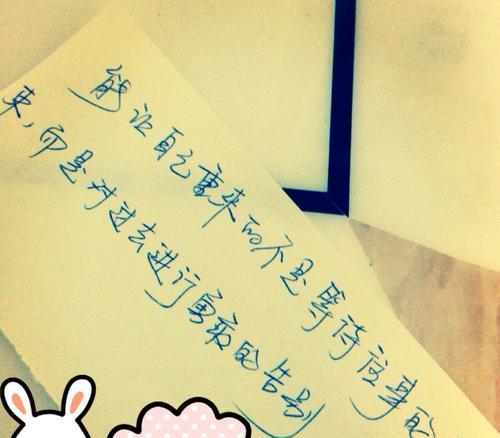 能让自己重来的不是等待这事的
束，而是对过去进行勇敢的告别